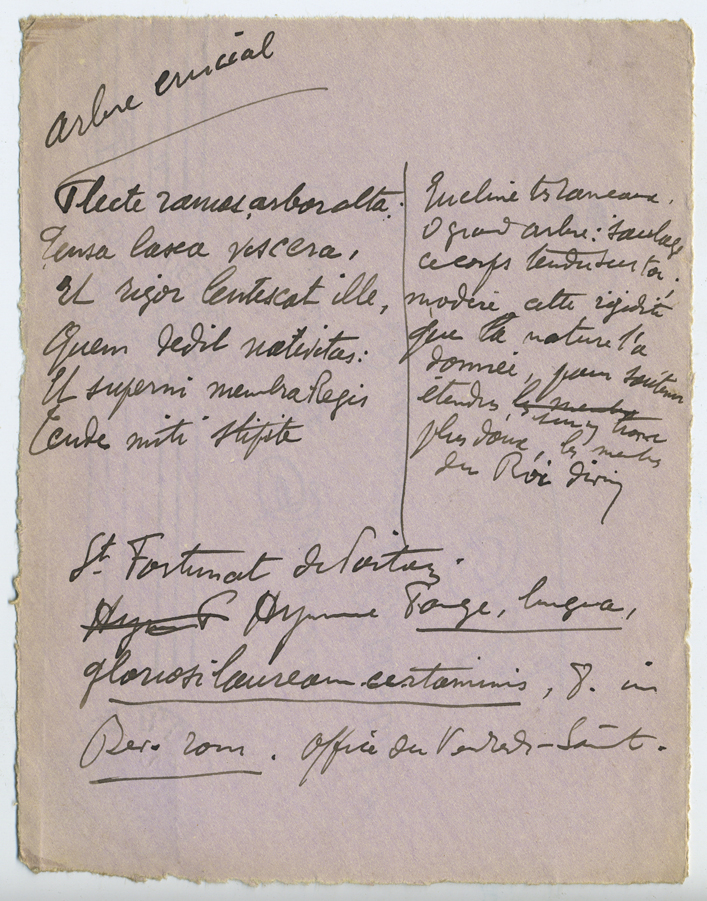 arbre crucial
Flecte ramos, arbor alta.
Tensa laxa viscera,
Et rigor lentescat ille,
Quem dedit nativitas:
Et superni membra Regis
Tende miti stipite
Incline tes rameaux,
O grand arbre: soulage
ce corps tendu sur toi;
modère cette rigidité
que la nature t'a
donnée, pour soutenir
étendus, les membres sur un tronc
plus doux, les membres
du Roi divin
St Fortunat de Poitiers.
Hymne Pange, lingua,
gloriosi laureain certaminis, 8. in
Brev. rom. Office du Vendredi-Saint.